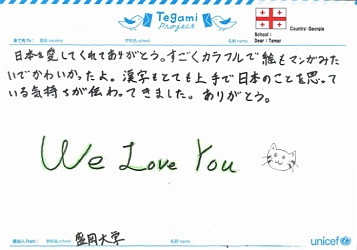 Tegami
Project
あて先To: 国名country 学校名school 名前name
Country: Georgia
School:
Dear: Tamar
日本を愛してくれてありがとう。すごくカラフルで絵もマンガみた
いでかわいかったよ。漢字もとても上手で日本のことを思って
いる気持ちが伝わってきました。ありがとう。
We Love You
差出人From: 国名country 学校名school 名前name
盛岡大学
unicef